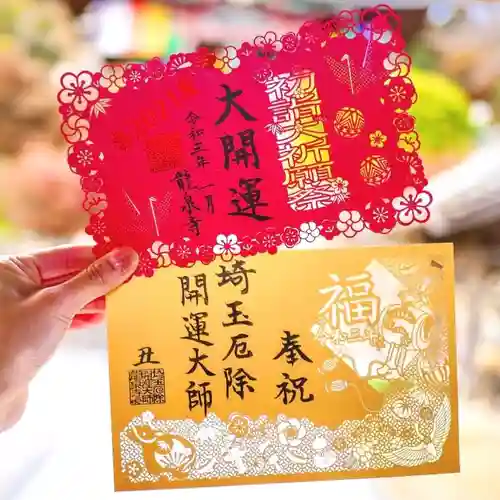 初詣大祈願祭
大開運
令和三年一月
龍泉寺
福
奉祝
埼玉厄除
開運大師
丑